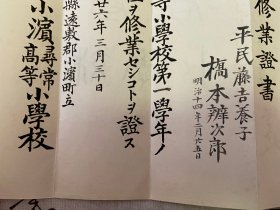 修業證書
平民藤吉養子
橋本辨次郎
明治十四年三月廿五日
等小學校第一學年ノ
ヲ修業セシコトヲ證ス
廿六年三月三十日
縣遠敷郡小濱町立
小濱尋常高等小學校